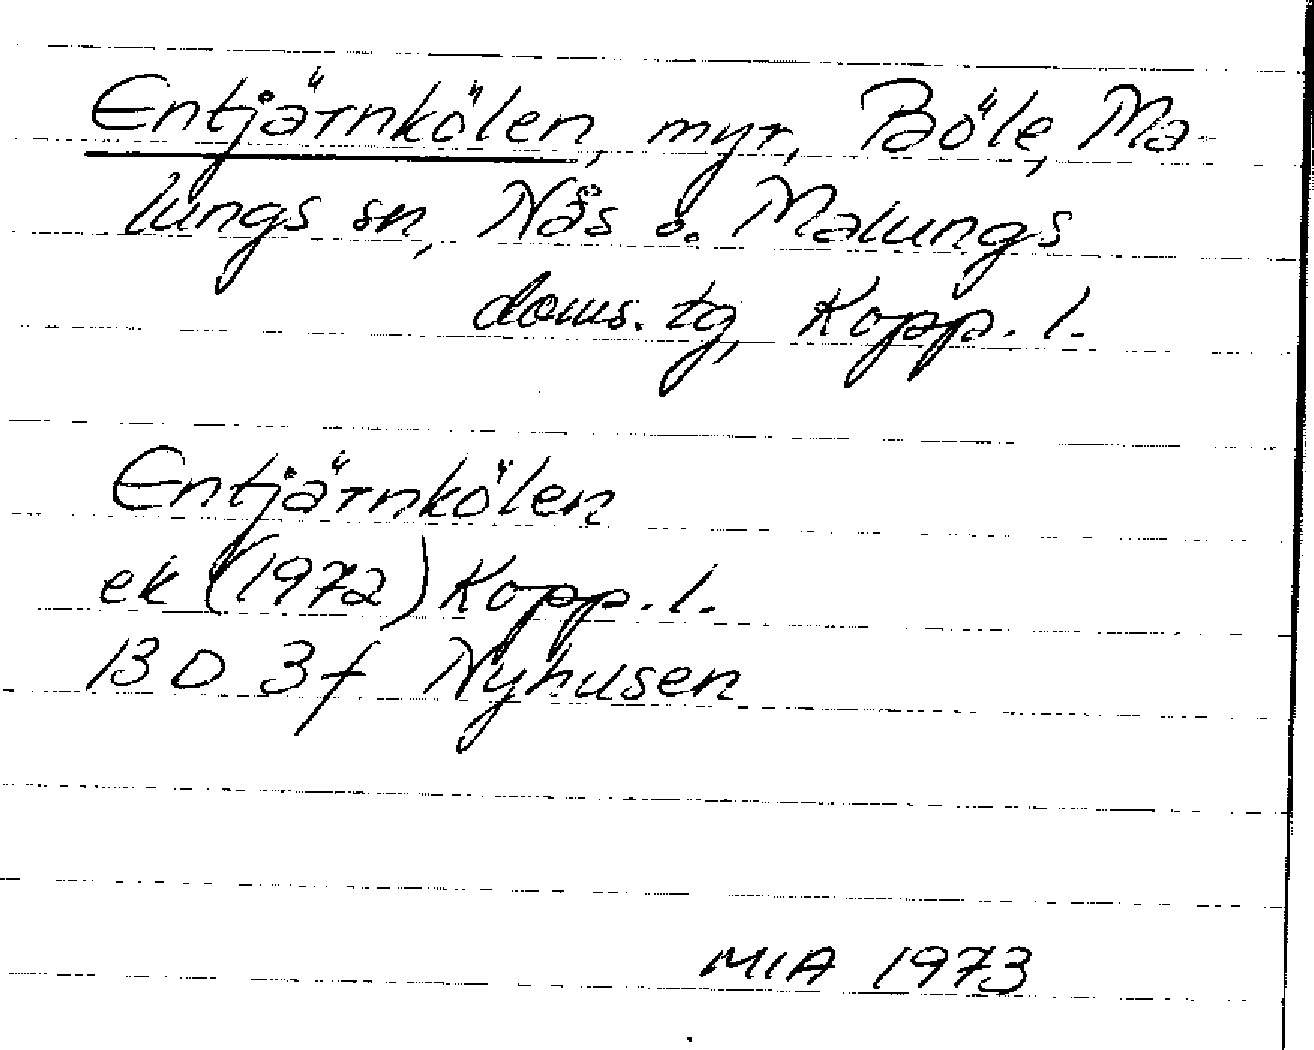 Entjärnkölen, myr, Böle, Ma-
lungs sn, Nås o. Malungs
doms. tg, Kopp. l.
Entjärnkölen
ek (1972) Kopp. l.
13 D 3f Nyhusen
MIA 1973